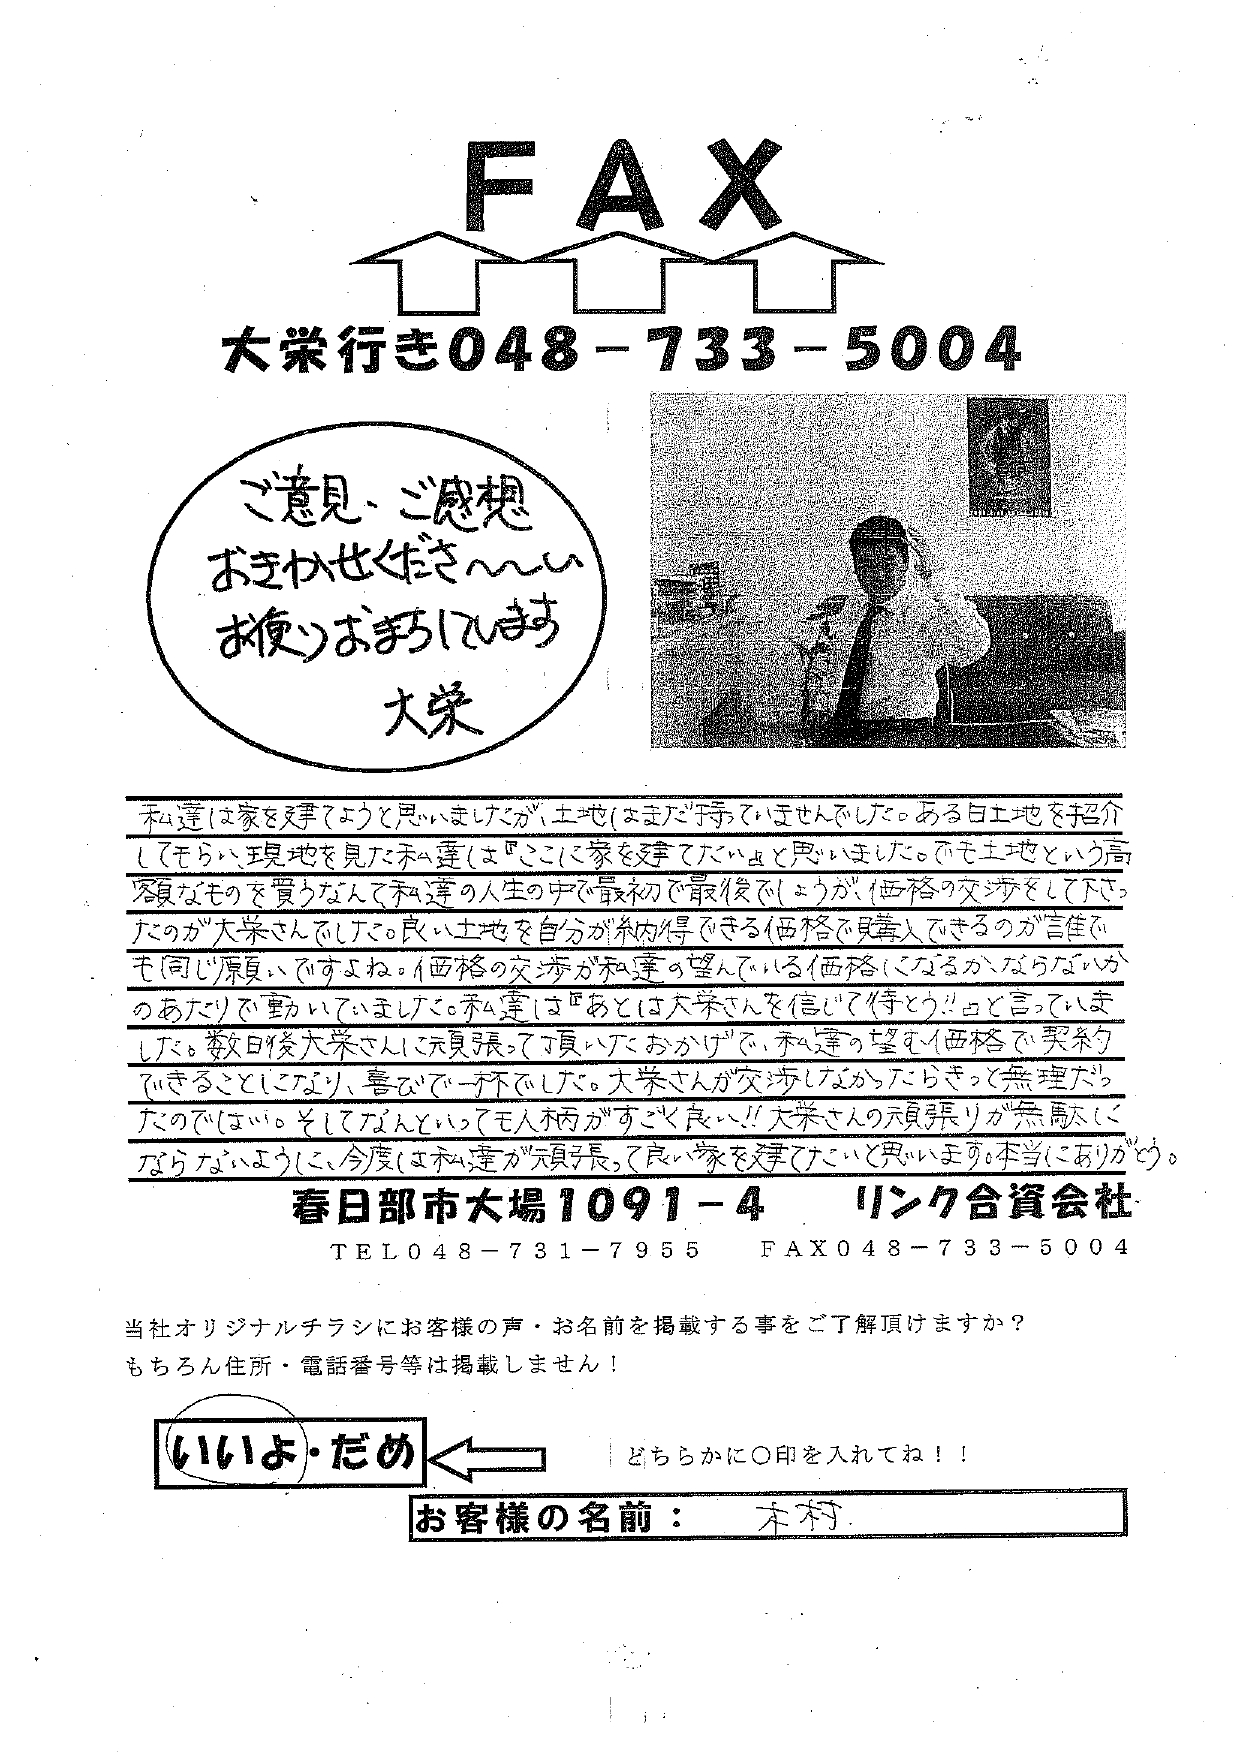 FAX
大栄行き048-733-5004
ご意見・ご感想
おきかせくださ〜〜い
お便りおまちしています
大栄
私達は家を建てようと思いましたが、土地はまだ持っていませんでした。ある日土地を紹介
してもらい、現地を見た私達は『ここに家を建てたい』と思いました。でも土地という高
額なものを買うなんて私達の人生の中で最初で最後でしょうが、価格の交渉をして下さっ
たのが大栄さんでした。良い土地を自分が納得できる価格で購入できるのが誰で
も同じ願いですよね。価格の交渉が私達の望んでいる価格になるか、ならないか
のあたりで動いていました。私達は『あとは大栄さんを信じて待とう!!』と言っていま
した。数日後大栄さんに頑張って頂いたおかげで、私達の望む価格で契約
できることになり、喜びで一杯でした。大栄さんが交渉しなかったらきっと無理だっ
たのでは…。そしてなんといっても人柄がすごく良い!!大栄さんの頑張りが無駄に
ならないように、今度は私達が頑張って良い家を建てたいと思います。本当にありがとう。
春日部市大場1091-4 リンク合資会社
TEL048-731-7955 FAX048-733-5004
当社オリジナルチラシにお客様の声・お名前を掲載する事をご了解頂けますか？
もちろん住所・電話番号等は掲載しません！
いいよ・だめ
どちらかに〇印を入れてね！！
お客様の名前： 木村